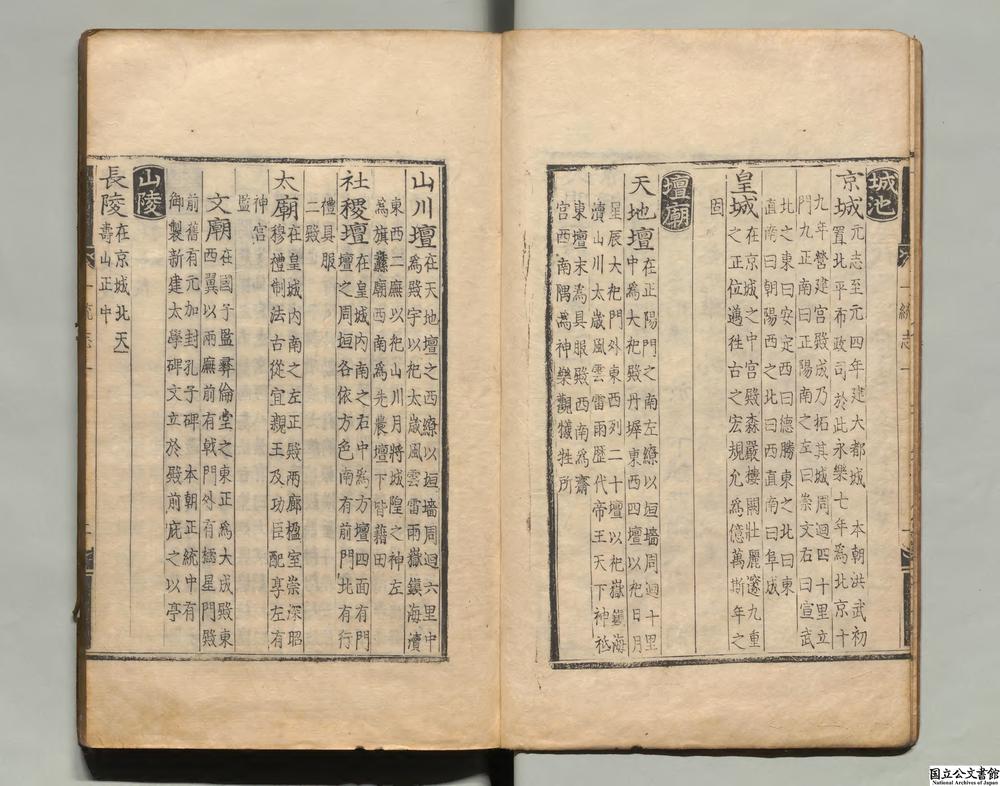 城池
京城元志至元四年建大都城　本朝洪武初
置北平布政司於此永樂七年為北京十
九年營建宮殿成乃拓其城周迴四十里立
門九正南曰正陽南之左曰崇文右曰宣武
北之東曰安定西曰德勝東之北曰東
直南曰朝陽西之北曰西直南曰阜成
皇城在京城之中宮殿森嚴樓闕壯麗邃九重
之正位邁徃古之宏規允為億萬斯年之
固
壇廟
天地壇在正陽門之南左繚以垣墻周迴十里
中為大祀殿丹墀東西四壇以祀日月
星辰大祀門外東西列二十壇以祀嶽鎮海
瀆山川太歲風雲雷雨歷代帝王天下神祗
東壇末為具服殿西南為齋
宮西南隅為神樂觀犧牲所
山川壇在天地壇之西繚以垣墻周迴六里中
為殿宇以祀太歲風雲雷雨嶽鎮海瀆
東西二廡以祀山川月將城隍之神左
為旗纛廟西南為先農壇下皆藉田
社稷壇在皇城內南之右中為方壇四面有門
壇之周垣各依方色南有前門北有行
禮具服
二殿
太廟在皇城內南之左正殿兩廊楹室崇深昭
穆禮制法古從宜親王及功臣配享左有
神宮
監
文廟在國子監彞倫堂之東正為大成殿東
西翼以兩廡前有戟門外有櫺星門殿
前舊有元加封孔子碑　本朝正統中有
御製新建太學碑文立於殿前庇之以亭
山陵
長陵在京城北天
壽山正中
一統志一
國立公文書館
National Archives of Japan